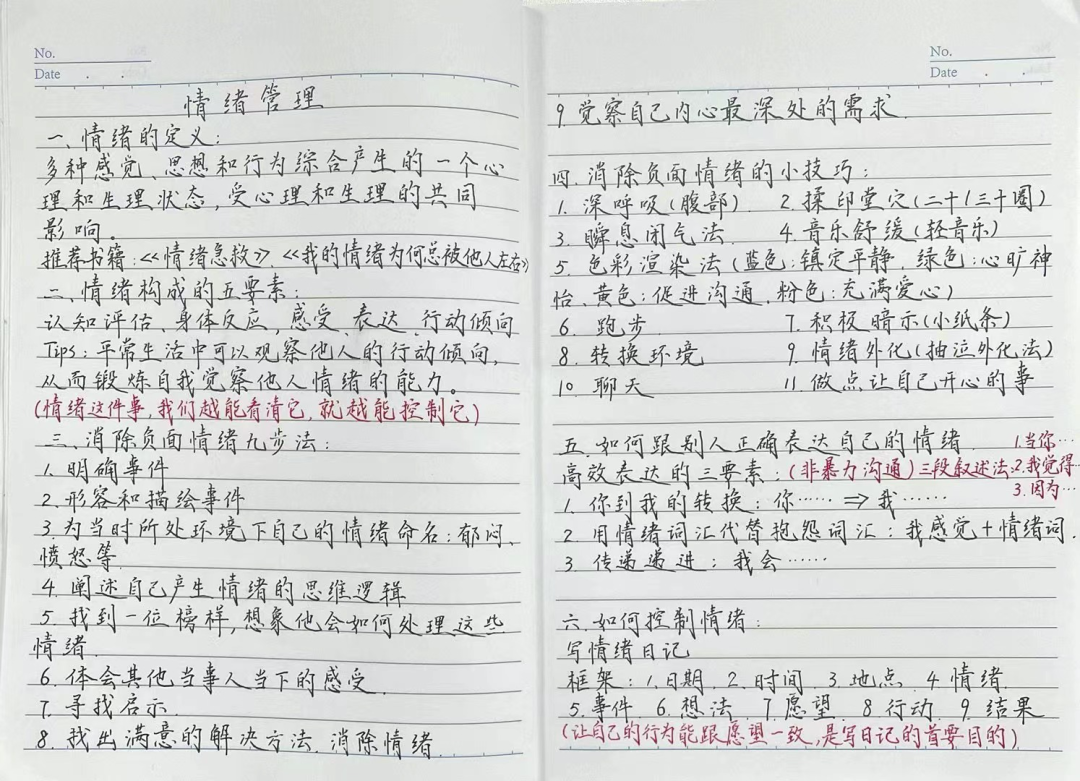 No.
Date . .
情绪管理
一、情绪的定义：
多种感觉、思想和行为综合产生的一个心
理和生理状态，受心理和生理的共同
影响。
推荐书籍：《情绪急救》、《我的情绪为何总被他人左右》
二、情绪构成的五要素：
认知评估、身体反应，感受、表达、行动倾向
Tips：平常生活中可以观察他人的行动倾向，
从而锻炼自我觉察他人情绪的能力。
(情绪这件事，我们越能看清它，就越能控制它)
三、消除负面情绪九步法：
1. 明确事件
2. 形容和描绘事件
3. 为当时所处环境下自己的情绪命名：郁闷、
愤怒等.
4. 阐述自己产生情绪的思维逻辑
5. 找到一位榜样，想象他会如何处理这些
情绪.
6. 体会其他当事人当下的感受.
7. 寻找启示.
8. 找出满意的解决方法，消除情绪.
No.
Date . .
9 觉察自己内心最深处的需求.
四. 消除负面情绪的小技巧：
1. 深呼吸(腹部). 2. 揉印堂穴(二十/三十圈)
3. 瞬息闭气法. 4. 音乐舒缓(轻音乐)
5. 色彩渲染法(蓝色：镇定平静，绿色：心旷神
怡、黄色：促进沟通，粉色：充满爱心)
6. 跑步. 7. 积极暗示(小纸条)
8. 转换环境 9. 情绪外化(抽泣外化法)
10 聊天 11 做点让自己开心的事
五. 如何跟别人正确表达自己的情绪. 1.当你…
高效表达的三要素：(非暴力沟通)三段叙述法: 2.我觉得…
3.因为…
1. 你到我的转换：你…… ⇒ 我……
2. 用情绪词汇代替抱怨词汇：我感觉+情绪词.
3. 传递递进：我会……
六. 如何控制情绪：
写情绪日记
框架：1.日期. 2. 时间. 3. 地点. 4 情绪.
5. 事件 6. 想法 7. 愿望. 8 行动. 9 结果
(让自己的行为能跟愿望一致，是写日记的首要目的)